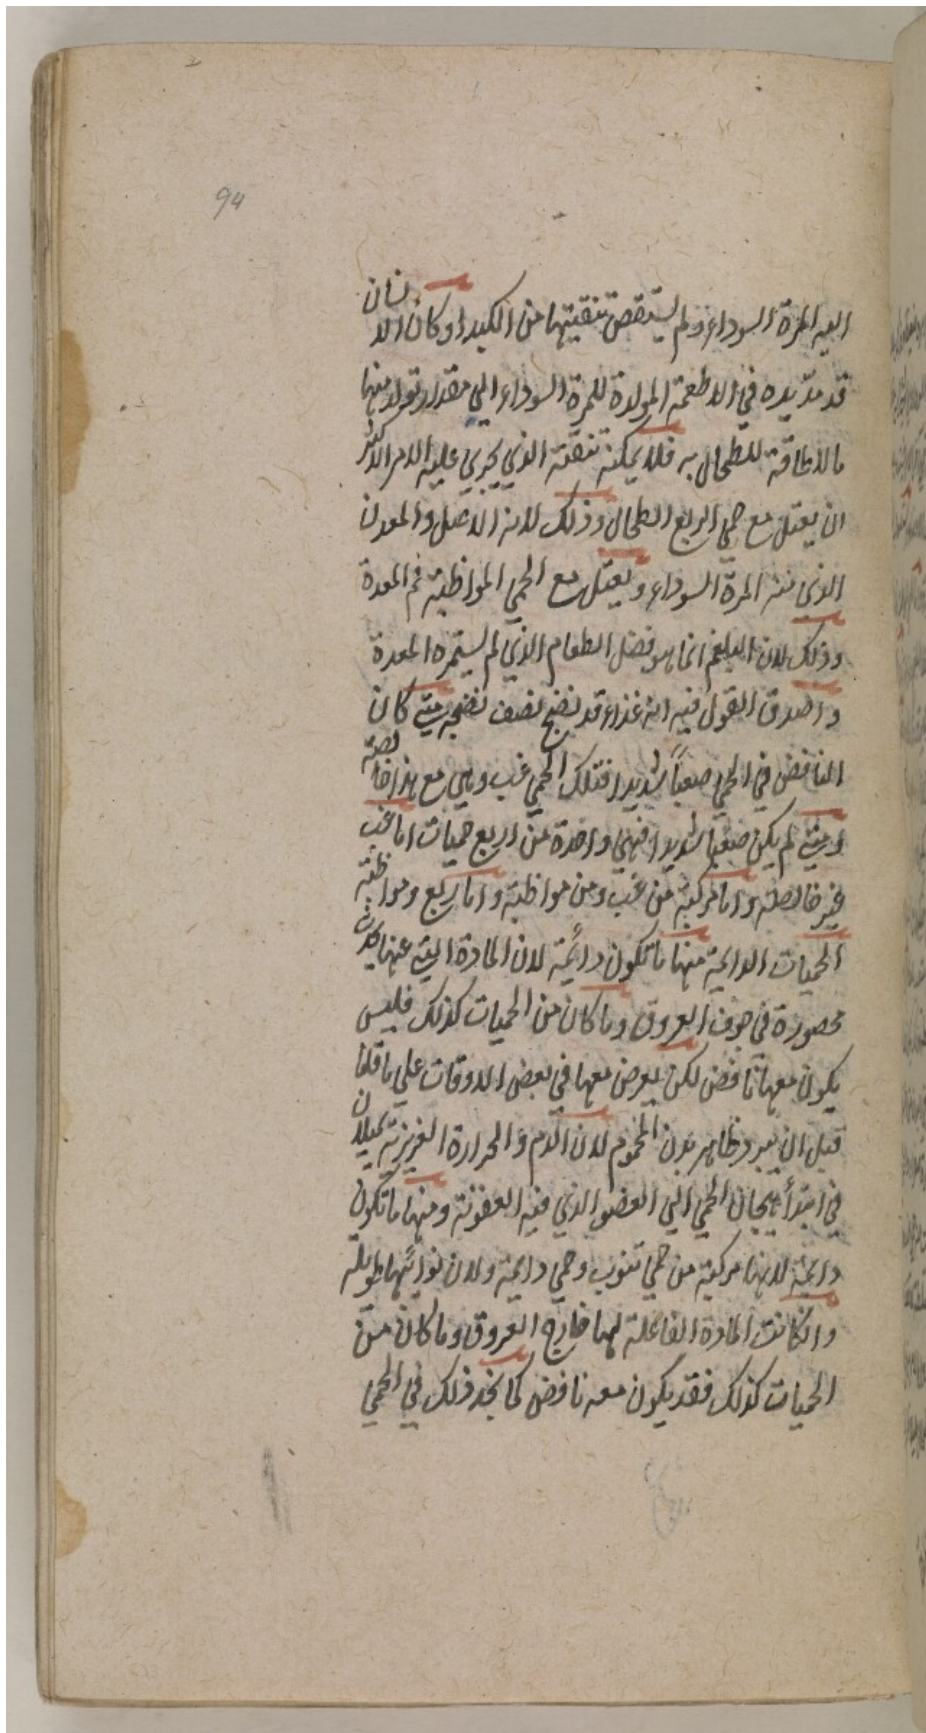 94
اليه المرة السوداء ولم يستقص تنقيتها من الكبد او كان الانسان
قد مد يده في الاطعمة المولدة للمرة السوداء الي مقدار يتولد منها
ما لا طاقة للطحال به فلا يمكنه تنقية الذي يجري عليه الامر الاكثر
ان يعتل مع حمي الربع الطحال وذلك لانه الاصل والمعدن
الذي منه المرة السوداء ويعتل مع الحمي المواظبة فم المعدة
وذلك لان البلغم انما هو فضل الطعام الذي لم يستمره المعدة
واصدق القول فيه انه غذاء قد نضج نصف نضجه متي كان
النافض في الحمي صعباً شديدا فتلك الحمي غب وهي مع هذا خالصة
ومتي لم يكن صعبا شديدا فهي واحدة من اربع حميات اما غب
غير خالصة واما مركبة من غب ومن مواظبة واما ربع ومواظبة
الحميات الدائمة منها ما تكون دائمة لان المادة التي عنها تحدث
محصورة في جوف العروق وما كان من الحميات كذلك فليس
يكون معها نافض لكن يعرض معها في بعض الاوقات علي ما قلنا
قبل ان يبرد ظاهر بدن المحموم لان الدم والحرارة الغريزية يميلان
في ابتدأ هيجان الحمي الي العضو الذي فيه العفونة ومنها ما تكون
دائمة لانها مركبة من حمي تنوب وحمي دائمة ولان نوائبها طويلة
وان كانت المادة الفاعلة لها خارج العروق وما كان من
الحميات كذلك فقد يكون معه نافض كما نجد ذلك في الحمي